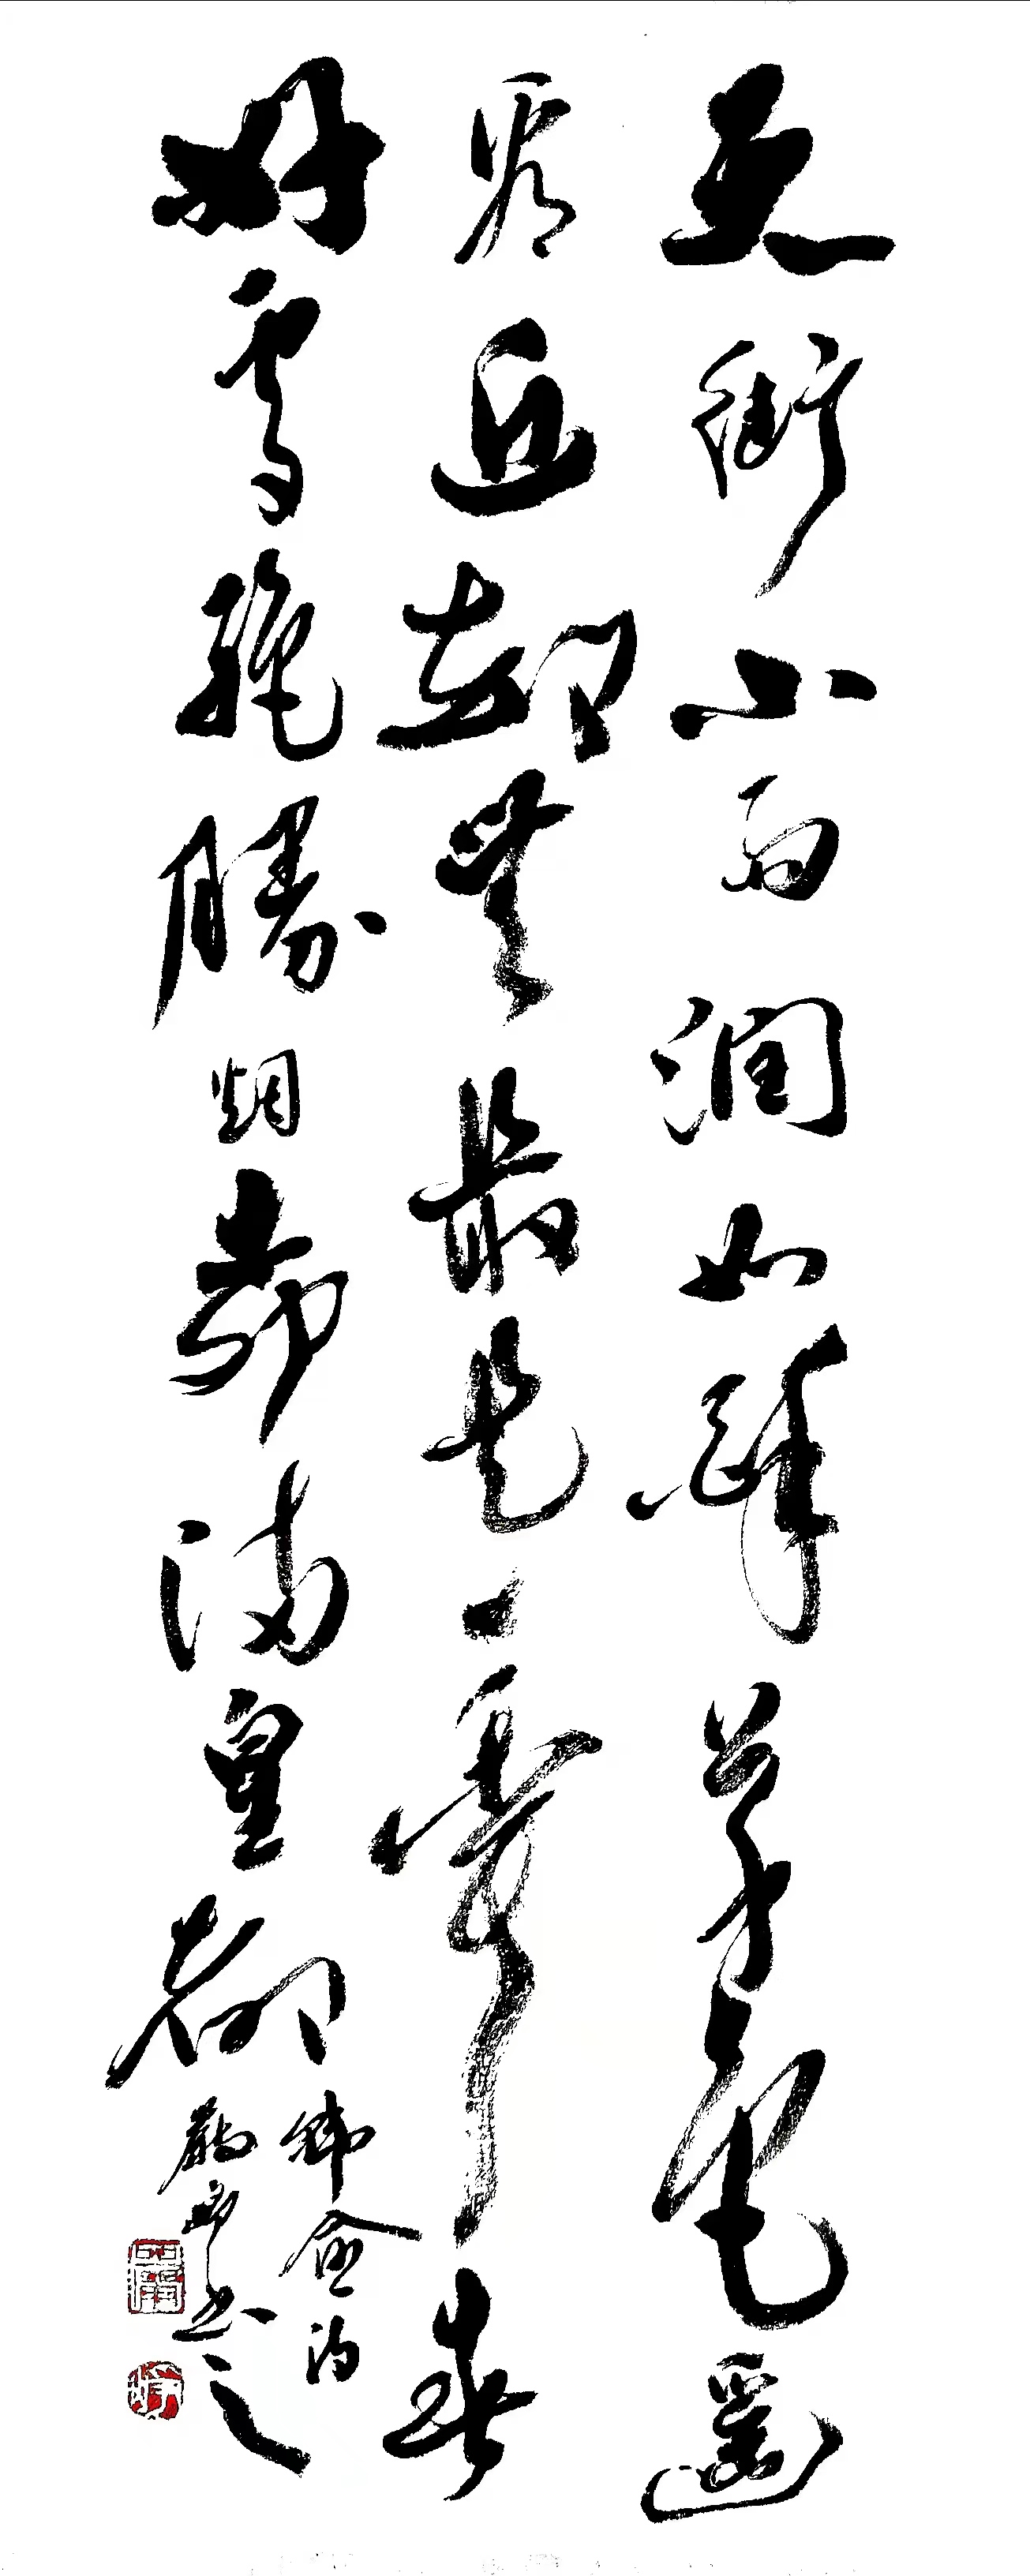 天街小雨润如酥草色遥
看近却無最是一年春
好處絶勝烟柳满皇都
韩愈诗
書之